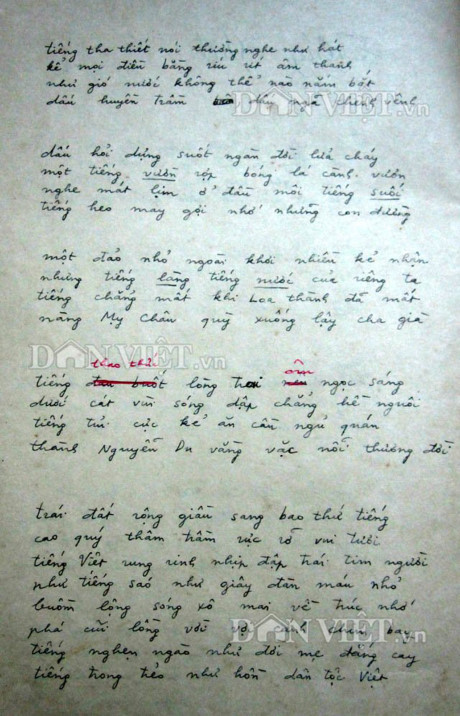 tiếng tha thiết nói thường nghe như hát
kể mọi điều bằng ríu rít âm thanh
như gió nước không thể nào nắm bắt
dấu huyền trầm dấu ngã chênh vênh
DANVIET.vn
dấu hỏi dựng suốt ngàn đời lửa cháy
một tiếng vườn rợp bóng lá cành vươn
nghe mát lịm ở đầu môi tiếng suối
tiếng heo may gợi nhớ những con đường
một đảo nhỏ ngoài khơi nhiều kẻ nhận
nhưng tiếng làng tiếng nước của riêng ta
tiếng chẳng mất khi Loa thành đã mất
nàng Mỵ Châu quỳ xuống lạy cha già
DANVIET.vn
thao thức ôm
tiếng đau buốt lòng trai nên ngọc sáng
dưới cát vùi sóng dập chẳng hề nguôi
tiếng tủi cực kẻ ăn cầu ngủ quán
thành Nguyễn Du vằng vặc nỗi thương đời
trái đất rộng giầu sang bao thứ tiếng
cao quý thâm trầm rực rỡ vui tươi
tiếng Việt rung rinh nhịp đập trái tim người
như tiếng sáo như giây đàn máu nhỏ
buồm lộng sóng xô mai về trúc nhớ
phá cũi lồng vời vợi cánh chim bay
tiếng nghẹn ngào như đời mẹ đắng cay
tiếng trong trẻo như hồn dân tộc Việt
DANVIET.vn